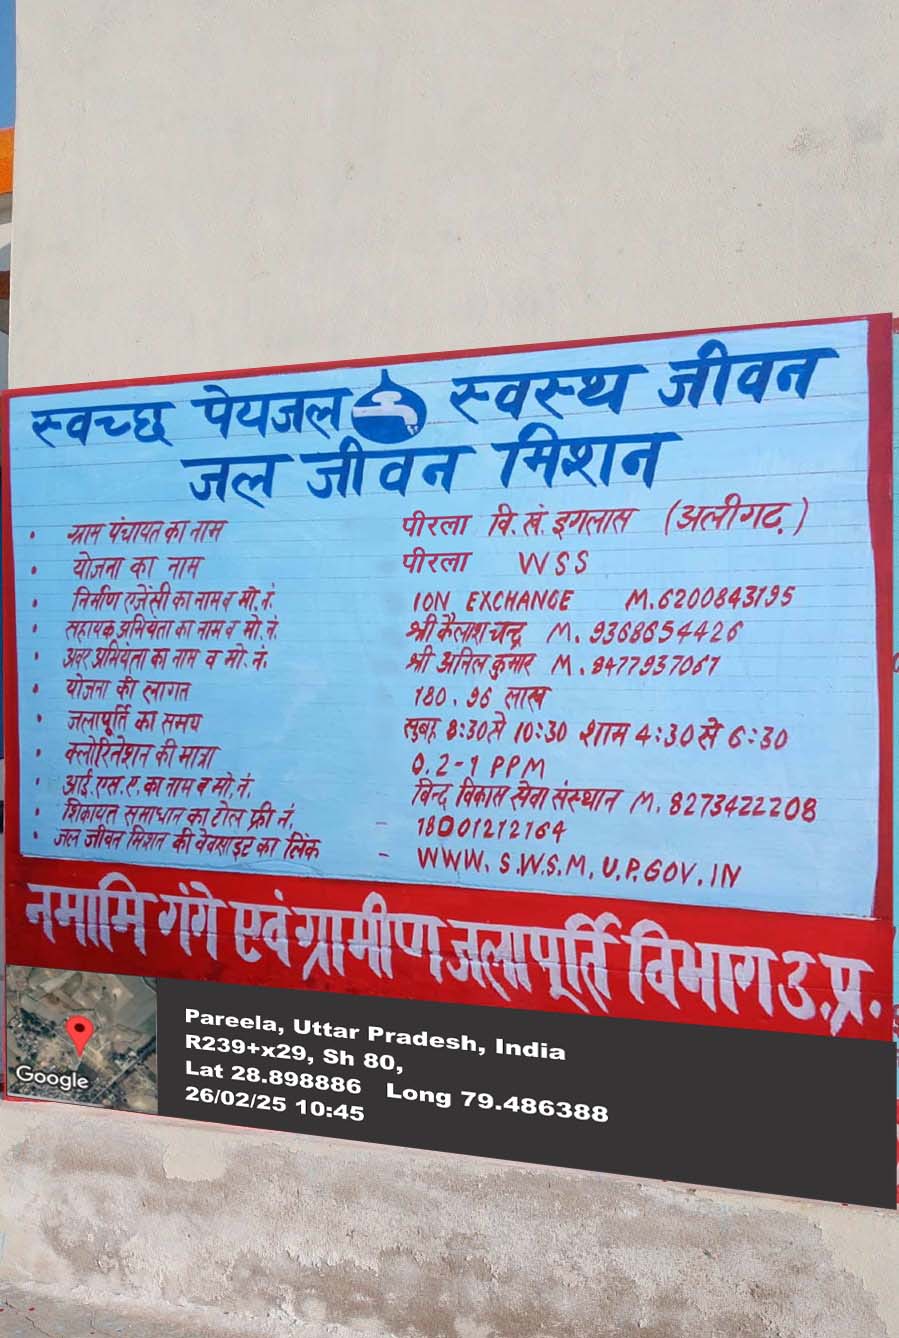 स्वच्छ पेयजल स्वस्थ जीवन
जल जीवन मिशन
• ग्राम पंचायत का नाम पीरला वि.खं. इगलास (अलीगढ़)
• योजना का नाम पीरला WSS
• निर्माण एजेंसी का नाम व मो.नं. ION EXCHANGE M.6200843195
• सहायक अभियंता का नाम व मो.नं. श्री कैलाश चन्द्र M. 9368654426
• अवर अभियंता का नाम व मो.नं. श्री अनिल कुमार M. 8477937067
• योजना की लागत 180.96 लाख
• जलापूर्ति का समय सुबह 8:30 से 10:30 शाम 4:30 से 6:30
• क्लोरिनेशन की मात्रा 0.2-1 PPM
• आई.एस.ए. का नाम व मो.नं. बिन्द विकास सेवा संस्थान M. 8273422208
• शिकायत समाधान का टोल फ्री नं. - 18001212164
• जल जीवन मिशन की वेवसाइट का लिंक - WWW.S.W.S.M.U.P.GOV.IN
नमामि गंगे एवं ग्रामीण जलापूर्ति विभाग उ.प्र.
Google
Pareela, Uttar Pradesh, India
R239+x29, Sh 80,
Lat 28.898886 Long 79.486388
26/02/25 10:45